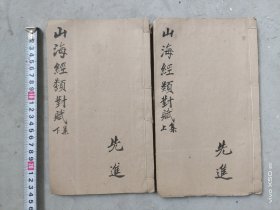 山海經類對賦上集
先進
山海經類對賦下集
先進